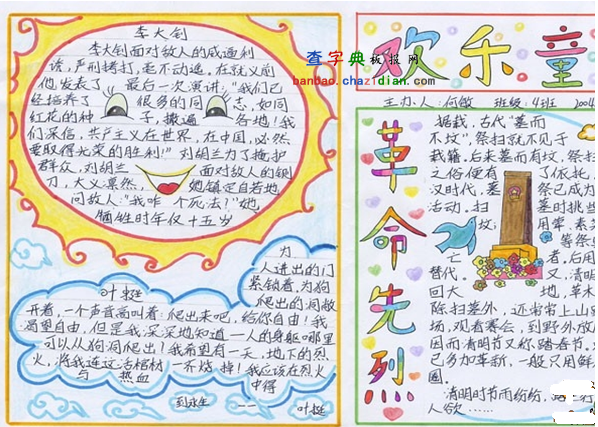 李大钊
李大钊面对敌人的威逼利
诱,严刑拷打,毫不动遥。在就义前
他发表了最后一次演讲,"我们已
经培养了很多的同志,如同
红花的种子,撒遍各地!我
们深信,共产主义在世界,在中国,必然
要取得光荣的胜利!"刘胡兰为了掩护
群众,刘胡兰面对敌人的铡
刀,大义凛然,她镇定自若地
问敌人:"我咋个死法?"她
牺牲时年仅十五岁
叶挺
为
人进出的门
紧锁着,为狗
爬出的洞敞
开着,一个声音高叫着:爬出来吧,给你自由!我
渴望自由,但是我深深地知道——人的身躯哪里
可以从狗洞爬出!我希望有一天,地下的烈
火,将我连这活棺材一齐烧掉!我应该在烈火
与热血中得
到永生
——叶挺
查字典板报网
banbao.chazidian.com
欢乐童
主办人:何敏 班级:4班 2004
革命先烈
据载,古代"墓而
不坟",祭扫就不见于
载籍,后来墓而有坟,祭扫
之俗便有了依托,
汉时代,墓祭已成为
活动,扫墓时挑些
坟用荤、素
等祭
亡者,后用
替代。又,清明
回大地,草木
除扫墓外,还常常上山
场,观看赛会,到野外放
因而清明节又称踏春节。
已多加革新,一般只用鲜
圈。
清明时节雨纷纷,路上行
人欲……